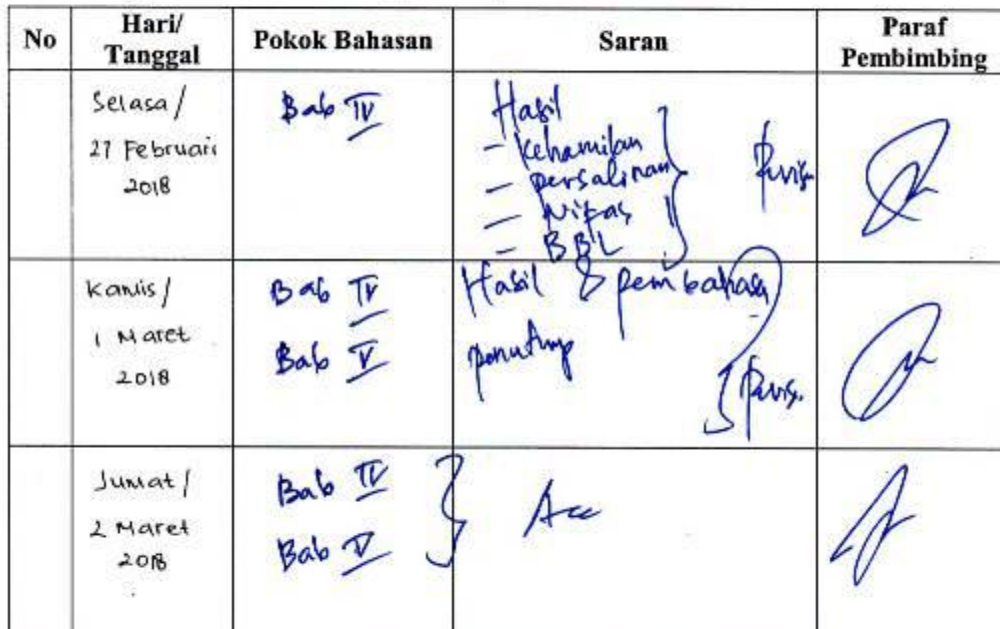 No Hari/ Tanggal Pokok Bahasan Saran Paraf Pembimbing
Selasa /
27 Februari
2018
Bab IV
Hasil
- Kehamilan
- Persalinan
- Nifas
- BBL
Revisi
Kamis /
1 Maret
2018
Bab IV
Bab V
Hasil & pembahasan
penutup
Revisi
Jumat /
2 Maret
2018
Bab IV
Bab V
Acc